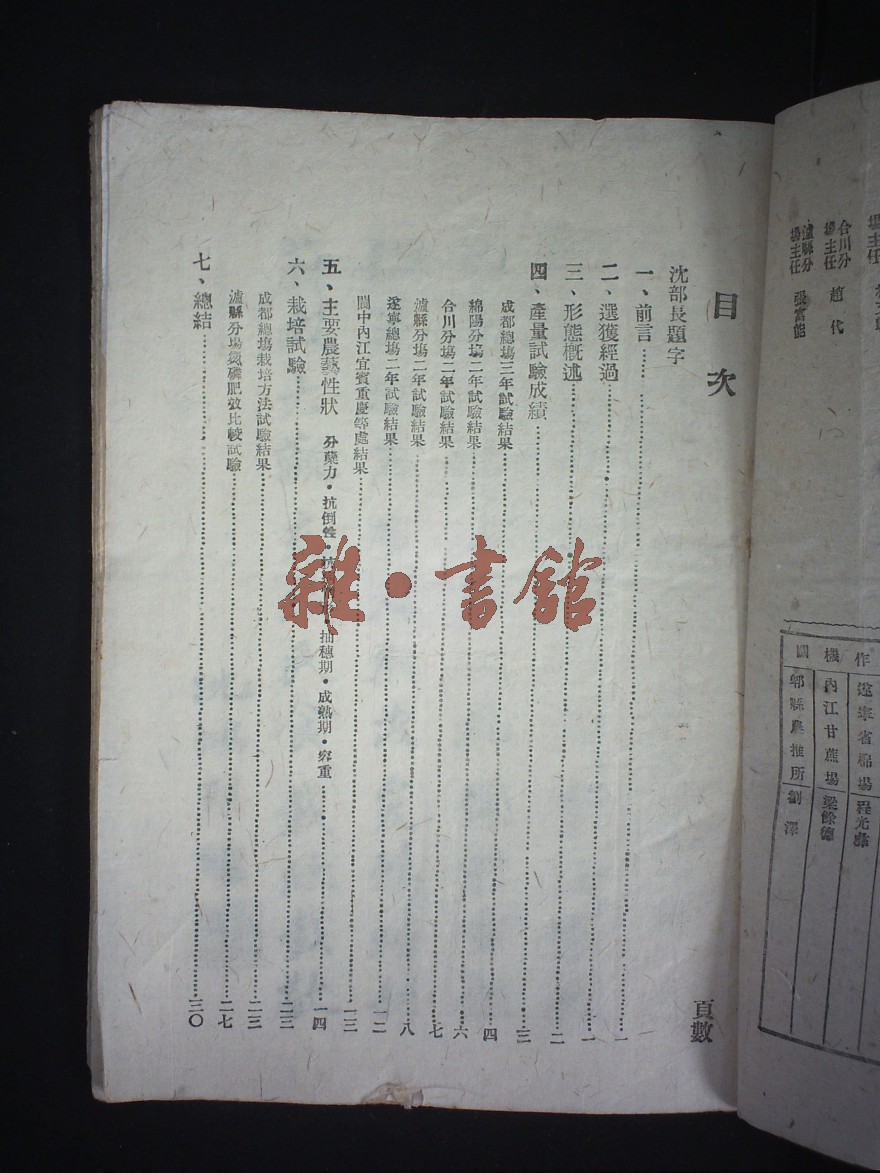 目次
頁數
沈部長題字
一、前言……一
二、選獲經過……一
三、形態概述……二
四、產量試驗成績……三
成都總場三年試驗結果……四
綿陽分場二年試驗結果……六
合川分場二年試驗結果……七
瀘縣分場二年試驗結果……八
遂寧總場二年試驗結果……一二
閬中內江宜賓重慶等處結果……一三
五、主要農藝性狀 分蘗力·抗倒性· 抽穗期·成熟期·容重……一四
六、栽培試驗……二三
成都總場栽培方法試驗結果……二三
瀘縣分場氮磷肥效比較試驗……二七
七、總結……三〇
雜·書館
場主任
合川分場主任 趙代
瀘縣分場主任 張富能
作機關
遂寧省棉場 程光
內江甘蔗場 梁餘德
郫縣農推所 劉澤